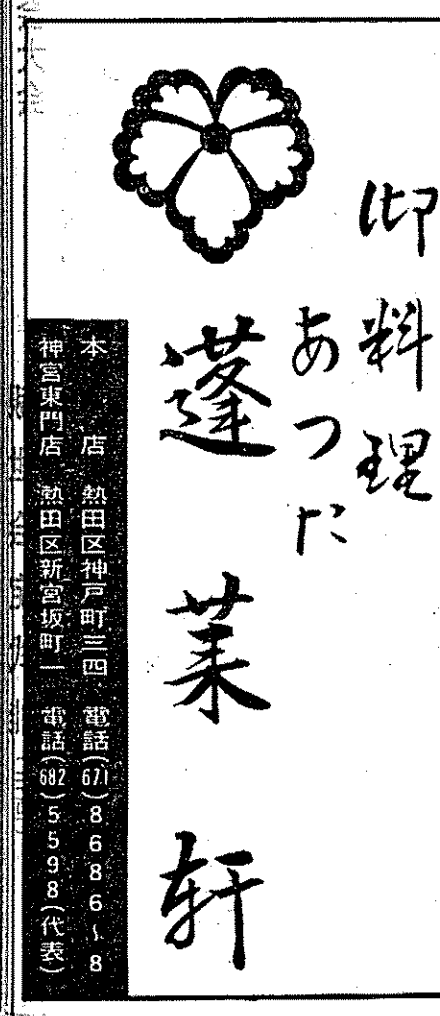 御料理
あつた
蓬莱軒
本店 熱田区神戸町三四 電話(671)8686~8
神宮東門店 熱田区新宮坂町一 電話(682)5598(代表)